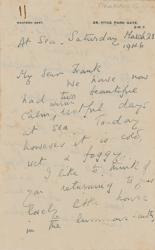 29, HYDE PARK GATE,
At Sea. Saturday March 23
1946
My dear Frank
We have now
had two beautiful
calm, restful days
at sea. Today
however it is cold,
wet & foggy.
I like to think of
you returning to your
lovely little house
in the